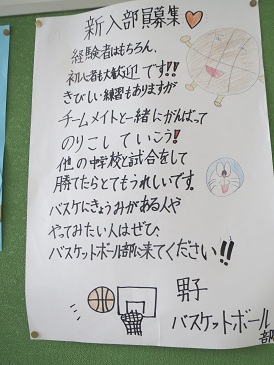 新入部員募集♡
経験者はもちろん、
初心者も大歓迎です!!
きびしい練習もありますが
チームメイトと一緒にがんばって
のりこしていこう!
他の中学校と試合をして
勝てたらとてもうれしいです。
バスケにきょうみがある人や
やってみたい人はぜひ、
バスケットボール部に来てください!!
男子
バスケットボール
部